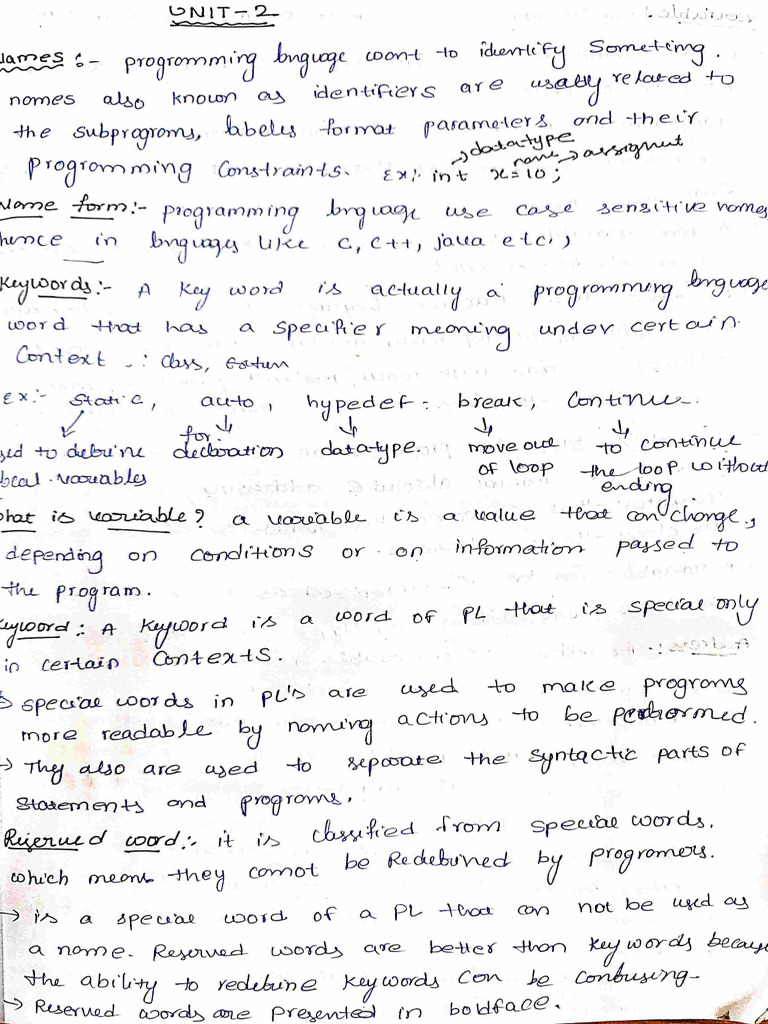 UNIT-2
Names :- programming bnguage wont to identify Someting.
names also known as identifiers are usally related to
the subprograms, labeles format parameters and their
programming Constraints. Ex:- int x=10;
datatype
name
assignut
Name form:- programming bnguage use case sensitive names
hence in bnguages like C, C++, java etc.,
Keywords:- A key word is actually a programming bnguage
word that has a specifier meaning under certain.
Context -: class,
Ex:- static, auto, hypedef: break, continue.
used to debine for decloration datatype. move out to continue
local variables of loop the loop without
ending
What is variable? a variable is a value that can change,
depending on conditions or on information passed to
the program.
Keyword: A keyword is a word of PL that is special only
in certain Contexts.
special words in PL's are used to make programs
more readable by naming actions to be performed.
→ They also are used to seperate the syntactic parts of
statements and programs.
Riserved word:- it is classified from special words.
which means they cannot be Redebined by programers.
→ is a special word of a PL that can not be used as
a name. Reserved words are better than keywords because
the ability to redebine keywords can be conbusing-
→ Reserved words are presented in boldface.